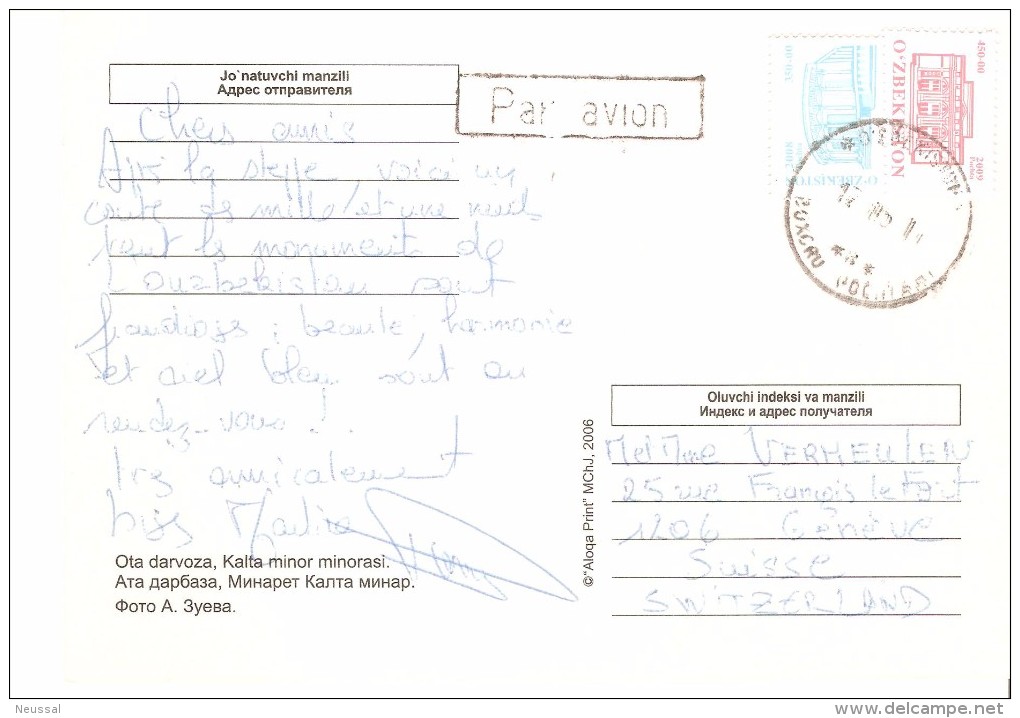 Jo`natuvchi manzili
Адрес отправителя
Par avion
450-00
O'ZBEKISTON
2009
O'ZBEKISTON
Chers amis
la steppe, voici un
conte des mille et une nuit
tant les monuments de
l'Ouzbekistan sont
grandioses : beauté, harmonie
et ciel bleu sont au
rendez-vous !
très amicalement
Ota darvoza, Kalta minor minorasi.
Ата дарбаза, Минарет Калта минар.
Фото А. Зуева.
©"Aloqa Print" MChJ, 2006
Oluvchi indeksi va manzili
Индекс и адрес получателя
M et Mme VERMEULEN
25 rue François le Fort
1206 Genève
Suisse
SWITZERLAND
Neussal
delcampe.net